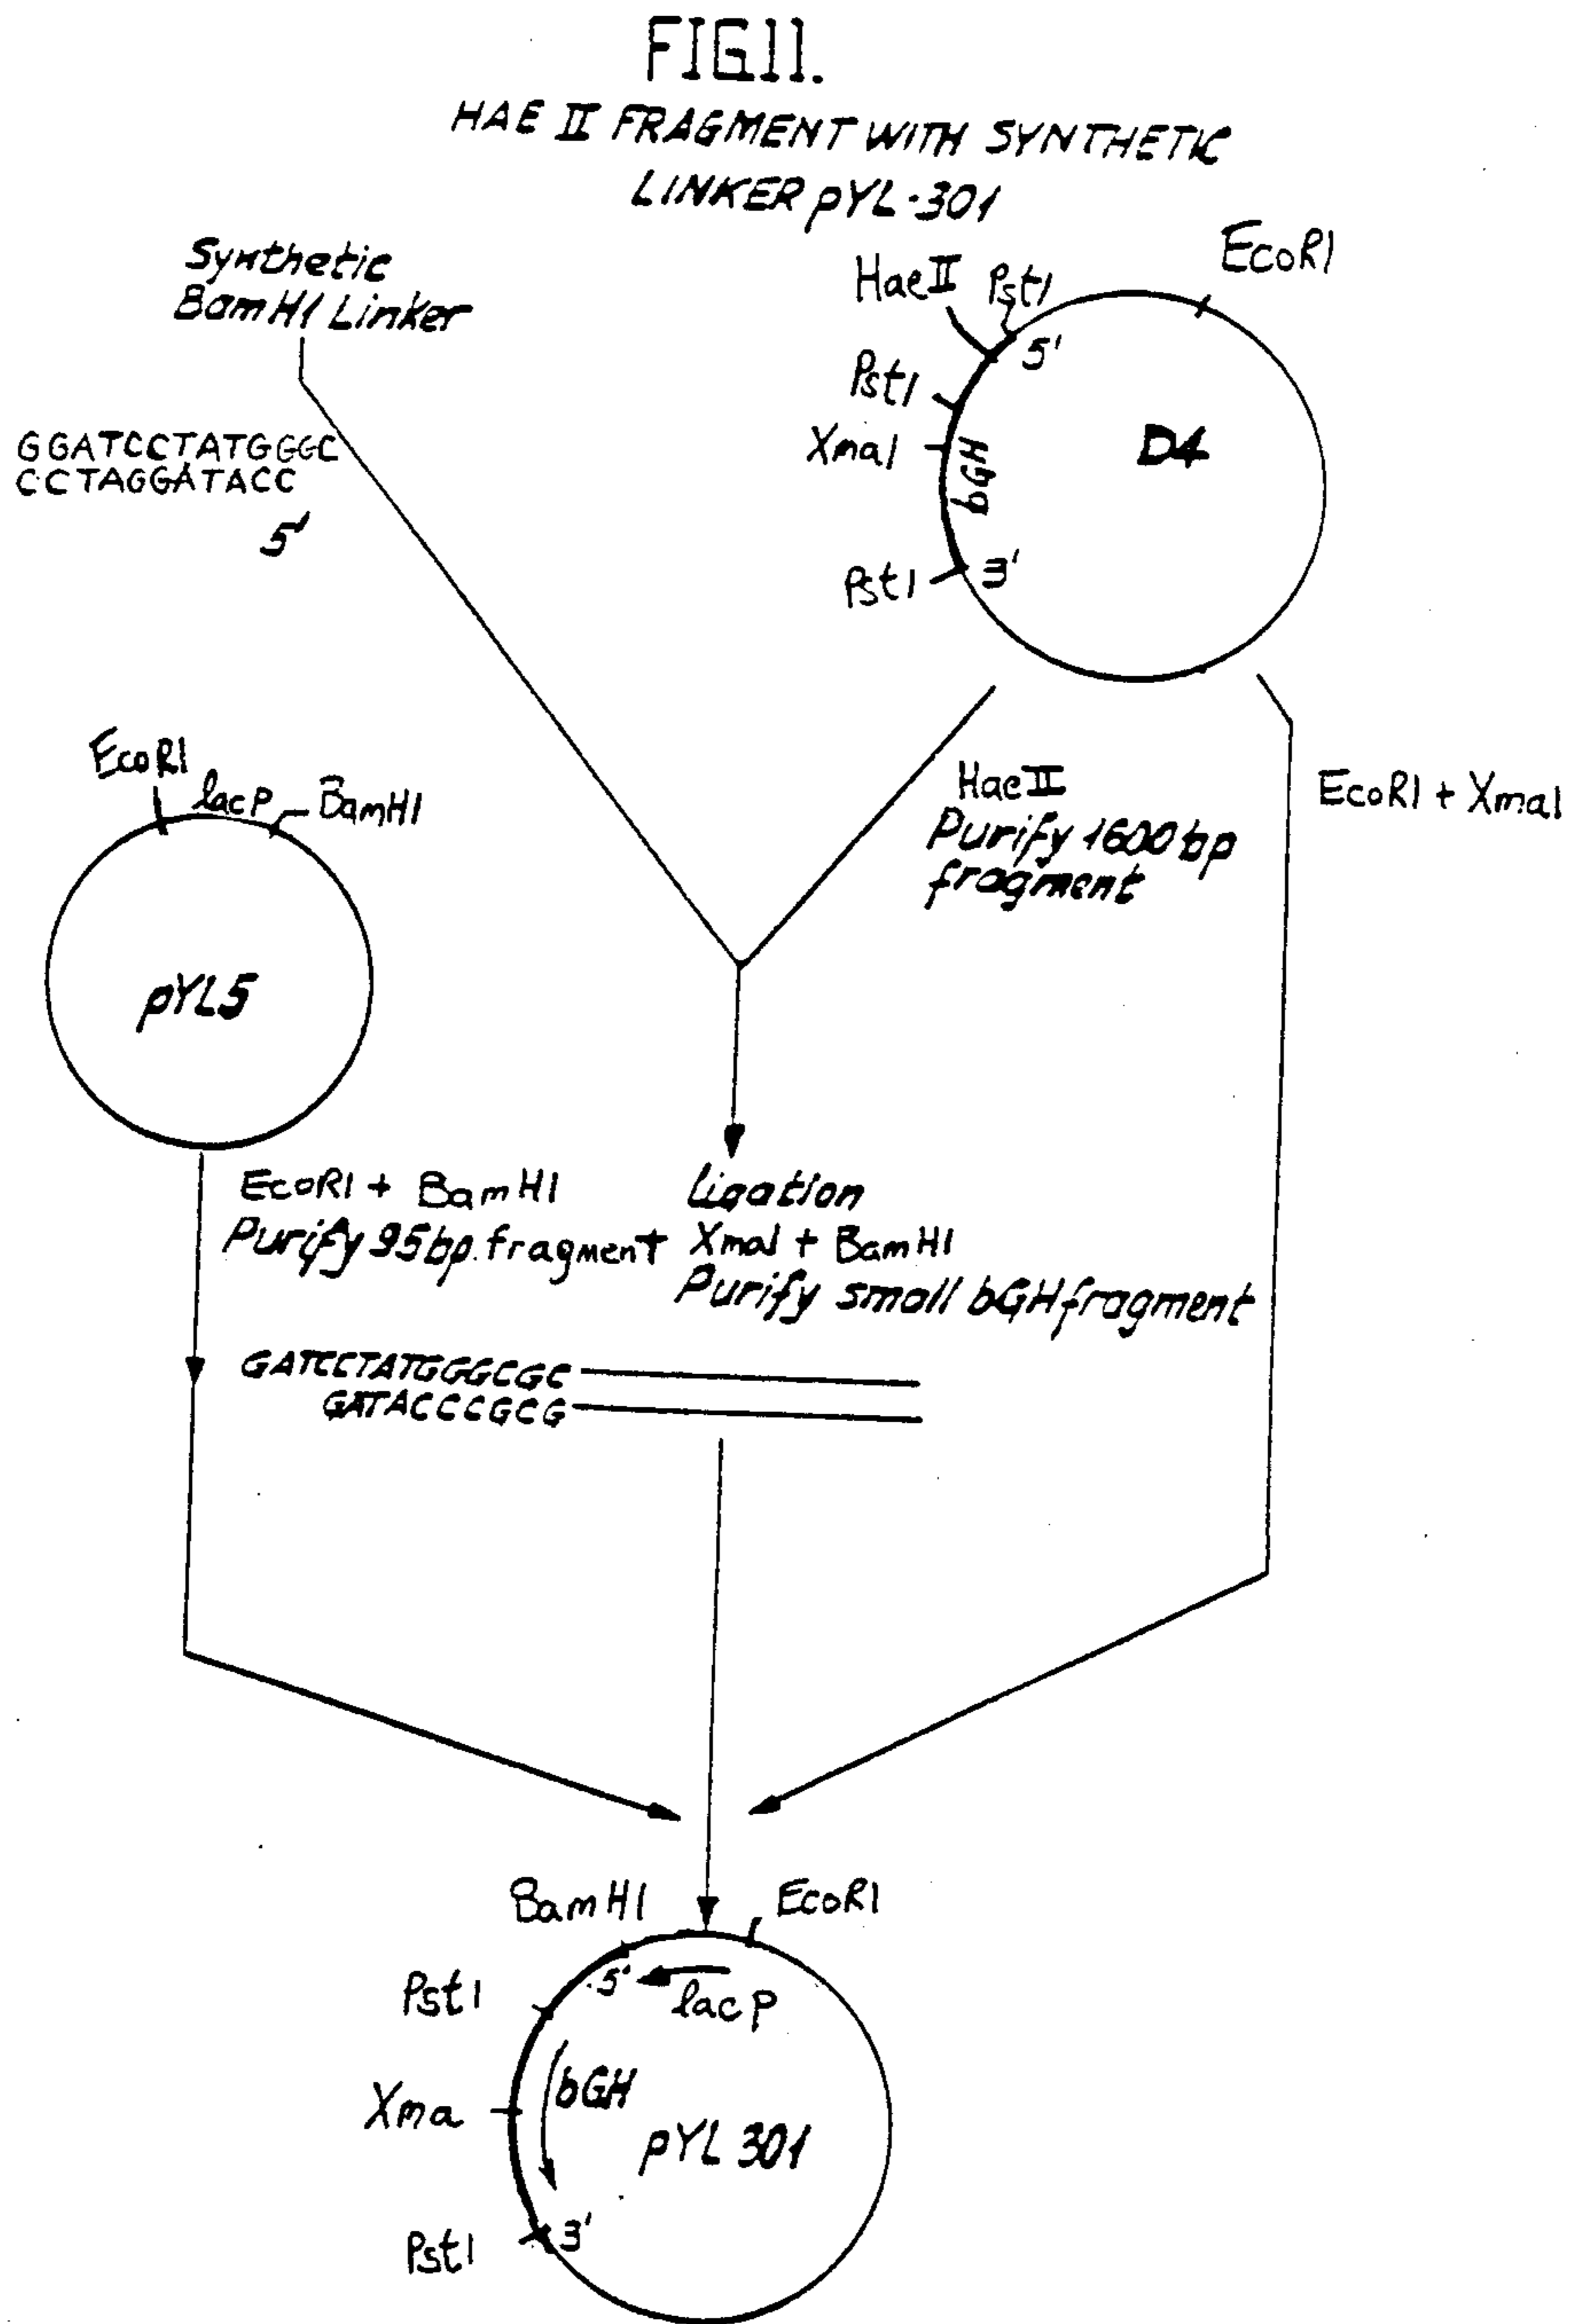 FIG11.
HAE II FRAGMENT WITH SYNTHETIC
LINKER pYL-301
Synthetic
BamHI Linker
GGATCCTATGGGC
CCTAGGATACC
5'
HaeII
PstI
EcoRI
5'
PstI
XmaI
bGH
D4
PstI
3'
EcoRI
lacP
BamHI
pYL5
HaeII
Purify 1600 bp
fragment
EcoRI + XmaI
EcoRI + BamHI
Purify 95bp. fragment
Ligation
XmaI + BamHI
Purify small bGH fragment
GATCCTATGGGCGC
GATACCCGCG
BamHI
EcoRI
PstI
5'
lacP
bGH
Xma
pYL 301
PstI
3'